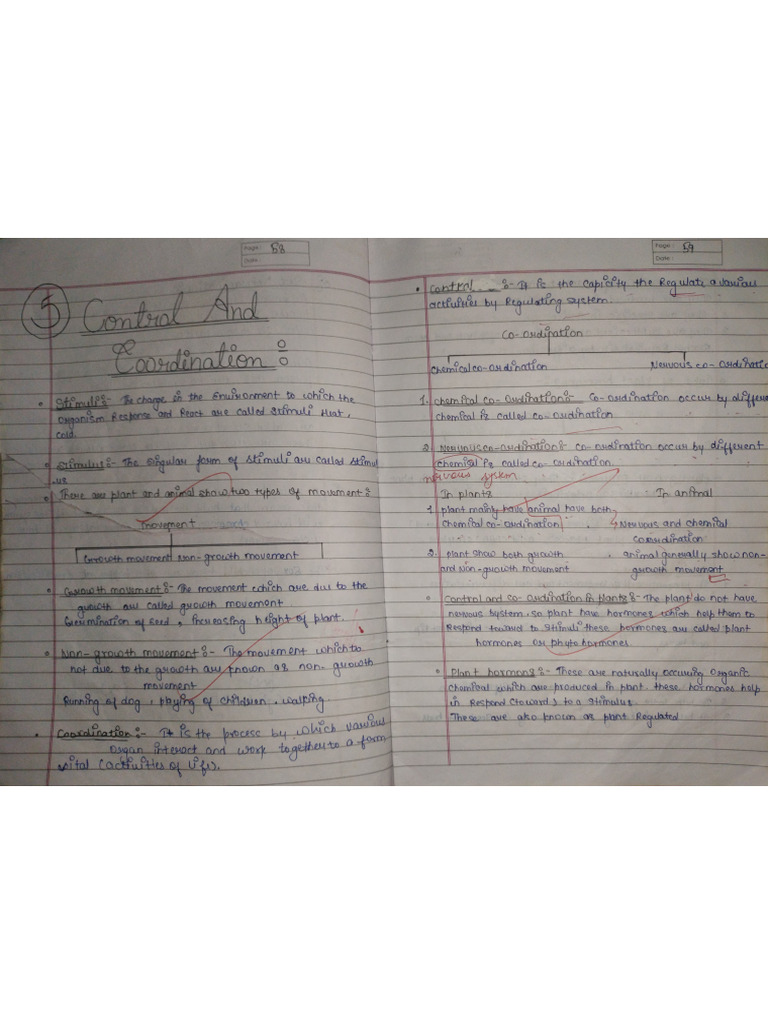 Page: 58
Date:
5 Control And
Coordination :
Stimuli :- The change in the Environment to which the
organism Response and React are called stimuli Heat,
cold.
Stimulus :- The singular form of stimuli are called stimul
-us
There are plant and animal show two types of movement :
movement
Growth movement Non-growth movement
Growth movement :- The movement which are due to the
growth are called growth movement
Germination of seed, increasing height of plant.
Non-growth movement :- The movement which to
not due to the growth are known as non-growth
movement
Running of dog, playing of children, walking
Coordination :- It is the process by which various
organ interact and work together to a form
vital (activities of life).
Page: 59
Date:
Control :- It is the capicity the Regulate a various
activities by Regulating system.
Co-ordination
Chemical co-ordination Nervous co-ordinatio
1. chemical co-ordination :- co-ordination occur by differen
chemical is called co-ordination
2. Nervous co-ordination :- co-ordination occur by different
chemical is called co-ordination
nervous system
In plants In animal
1 plant mainly have animal have both
chemical co-ordination . Nervous and chemical
coordination
2. plant show both growth . animal generally show non-
and Non-growth movement growth movement
Control and co-ordination in plants :- The plant do not have
nervous system, so plant have hormones which help them to
Respond toward to stimuli these hormones are called plant
hormones or phytohormones
Plant hormons :- These are naturally occuring organic
chemical which are produced in plant these hormones help
in Respond (toward) to a stimulus
These are also known as plant Regulated